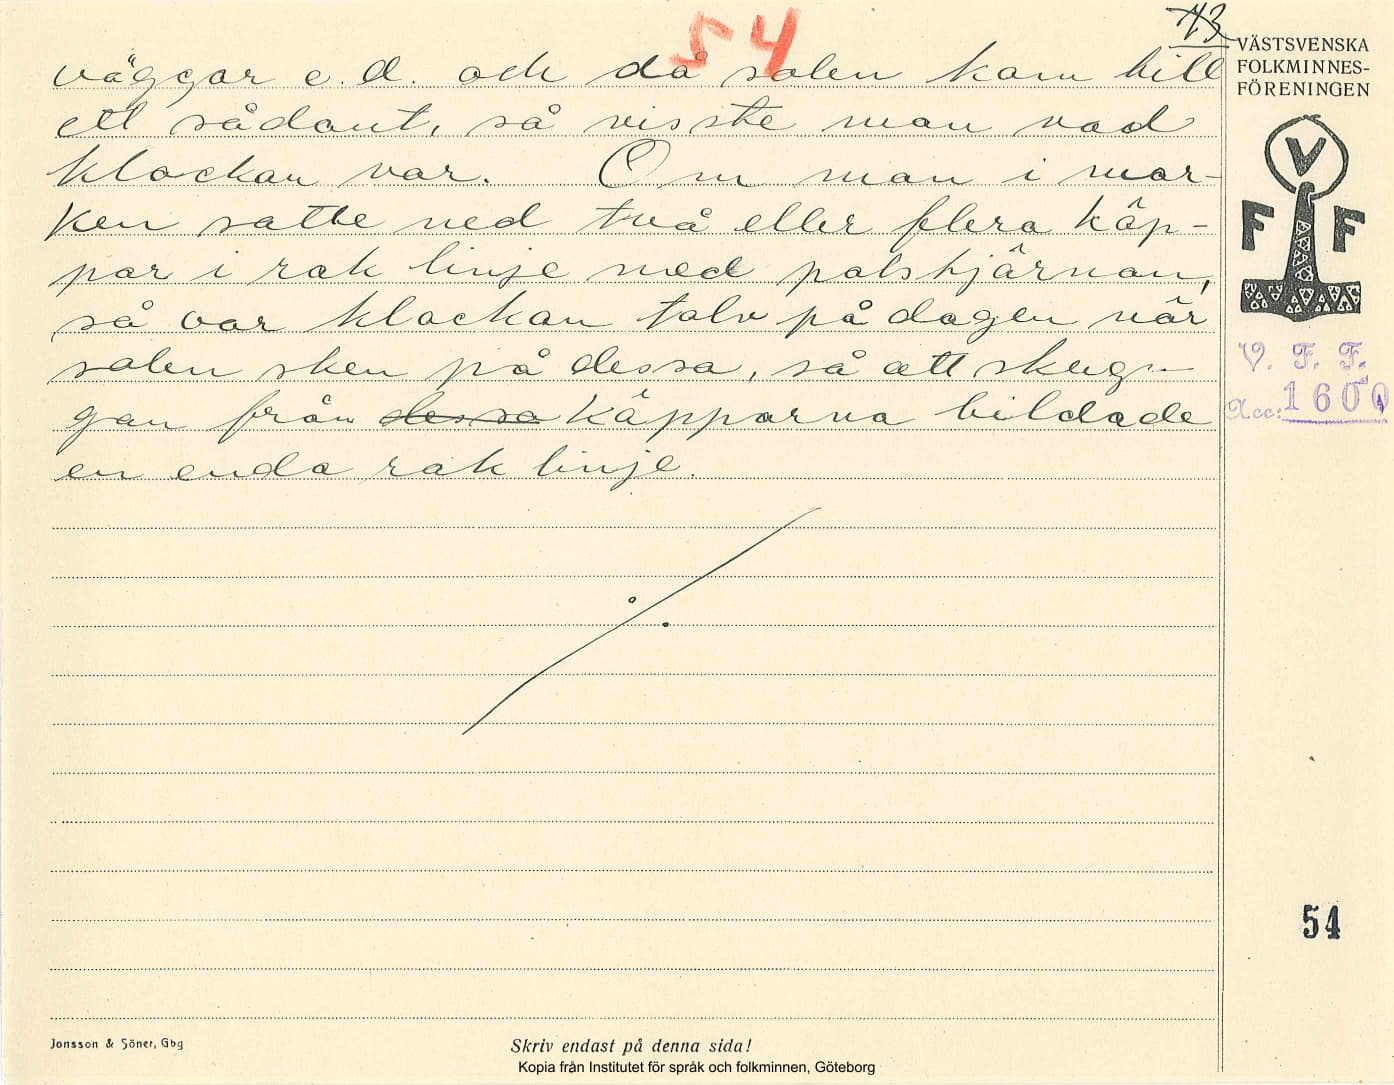 54
73
väggar e.d. och då solen kom till
ett sådant, så visste man vad
klockan var. Om man i mar-
ken satte ned två eller flera käp-
par i rak linje med polstjärnan,
så var klockan tolv på dagen när
solen sken på dessa, så att skug-
gan från dessa käpparna bildade
en enda rak linje.
VÄSTSVENSKA
FOLKMINNES-
FÖRENINGEN
V
F F
V. F. F.
Acc: 1600
54
Jonsson & Söner, Gbg
Skriv endast på denna sida!
Kopia från Institutet för språk och folkminnen, Göteborg